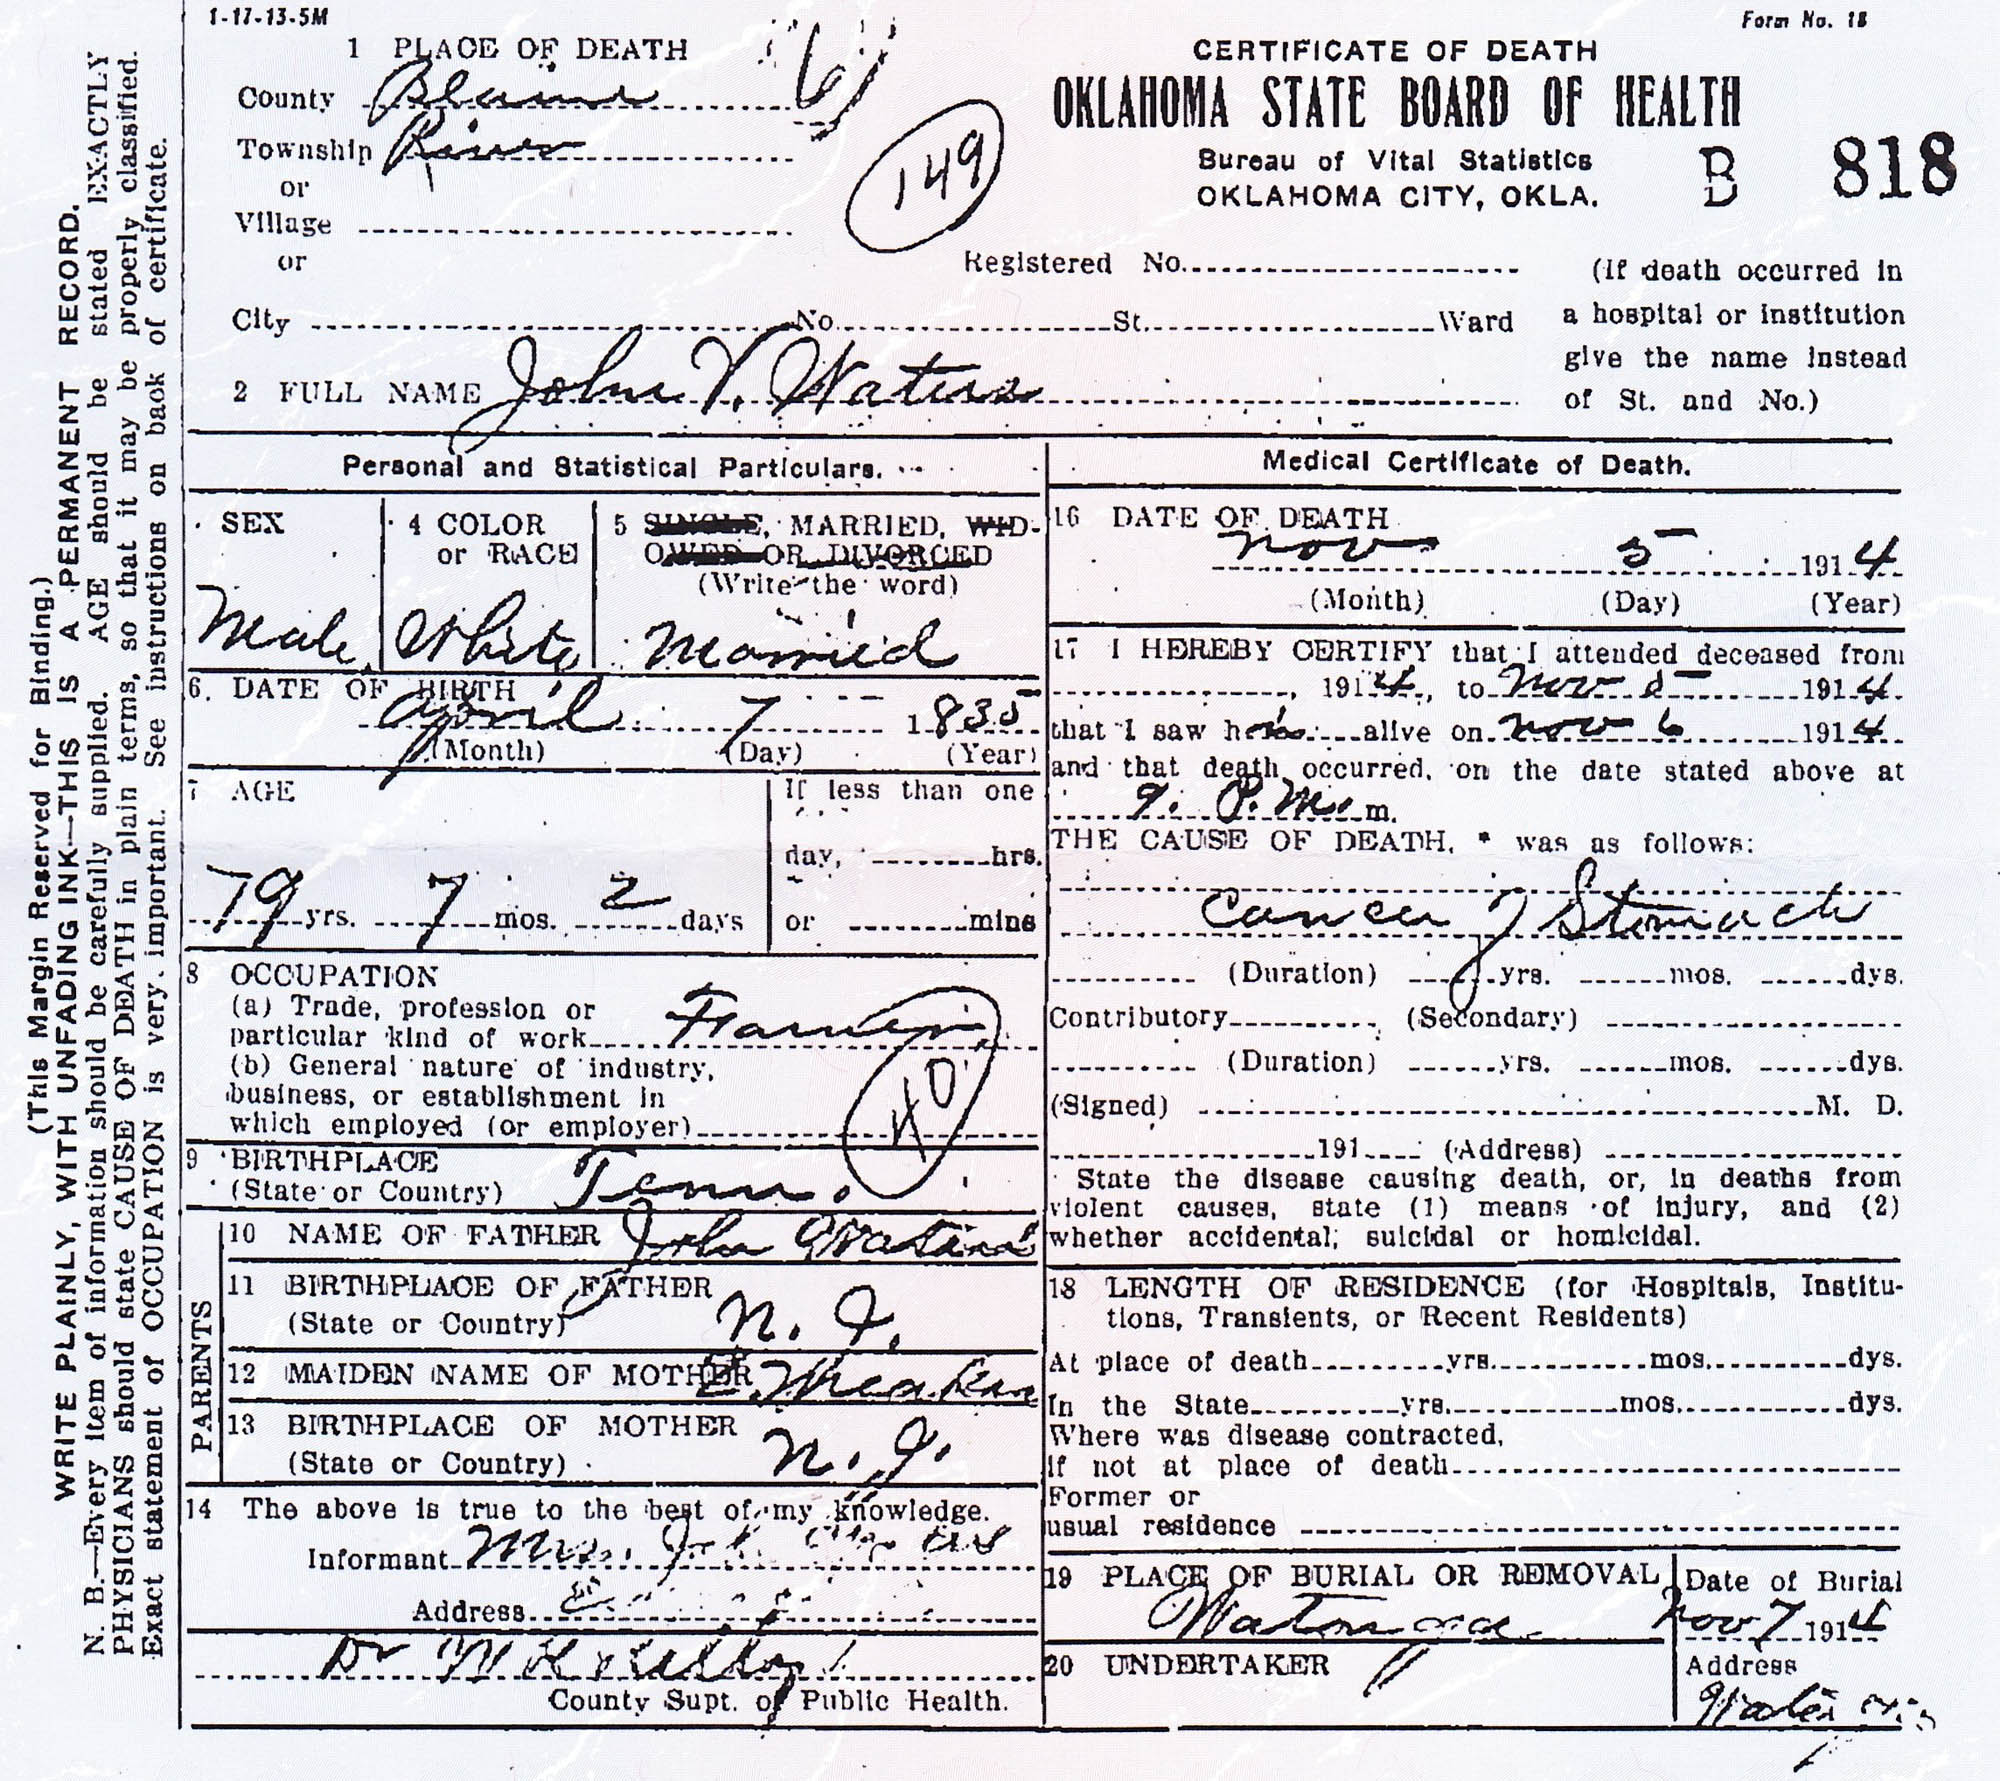 1-17-13-5M
Form No. 18
1 PLACE OF DEATH
County Blaine
Township River
or
Village
or
City No. St. Ward
149
CERTIFICATE OF DEATH
OKLAHOMA STATE BOARD OF HEALTH
Bureau of Vital Statistics
OKLAHOMA CITY, OKLA.
B 818
Registered No.
(If death occurred in
a hospital or institution
give the name instead
of St. and No.)
2 FULL NAME John V. Waters
Personal and Statistical Particulars.
SEX
Male
4 COLOR
or RACE
White
5 SINGLE, MARRIED, WID-
OWED OR DIVORCED
(Write the word)
Married
6. DATE OF BIRTH
April 7 1835
(Month) (Day) (Year)
7 AGE
79 yrs. 7 mos. 2 days
If less than one
day, hrs.
or mins
8 OCCUPATION
(a) Trade, profession or
particular kind of work Farmer
(b) General nature of industry,
business, or establishment in
which employed (or employer)
9 BIRTHPLACE
(State or Country) Tenn.
PARENTS
10 NAME OF FATHER John Waters
11 BIRTHPLACE OF FATHER
(State or Country) N. J.
12 MAIDEN NAME OF MOTHER
13 BIRTHPLACE OF MOTHER
(State or Country) N. J.
14 The above is true to the best of my knowledge.
Informant Mrs.
Address
Dr W H
County Supt. of Public Health.
Medical Certificate of Death.
16 DATE OF DEATH
Nov 5 1914
(Month) (Day) (Year)
17 I HEREBY CERTIFY that I attended deceased from
, 1914, to Nov 5 1914
that I saw him alive on Nov 6 1914
and that death occurred, on the date stated above at
9. P.M. m.
THE CAUSE OF DEATH, * was as follows:
Cancer of Stomach
(Duration) yrs. mos. dys.
Contributory (Secondary)
(Duration) yrs. mos. dys.
(Signed) M. D.
191 (Address)
State the disease causing death, or, in deaths from
violent causes, state (1) means of injury, and (2)
whether accidental; suicidal or homicidal.
18 LENGTH OF RESIDENCE (for Hospitals, Institu-
tions, Transients, or Recent Residents)
At place of death yrs. mos. dys.
In the State yrs. mos. dys.
Where was disease contracted,
if not at place of death
Former or
usual residence
19 PLACE OF BURIAL OR REMOVAL
Watonga
Date of Burial
Nov 7 1914
20 UNDERTAKER
Address
(This Margin Reserved for Binding.)
WRITE PLAINLY, WITH UNFADING INK—THIS IS A PERMANENT RECORD.
N. B.—Every item of information should be carefully supplied. AGE should be stated EXACTLY
PHYSICIANS should state CAUSE OF DEATH in plain terms, so that it may be properly classified.
Exact statement of OCCUPATION is very important. See instructions on back of certificate.